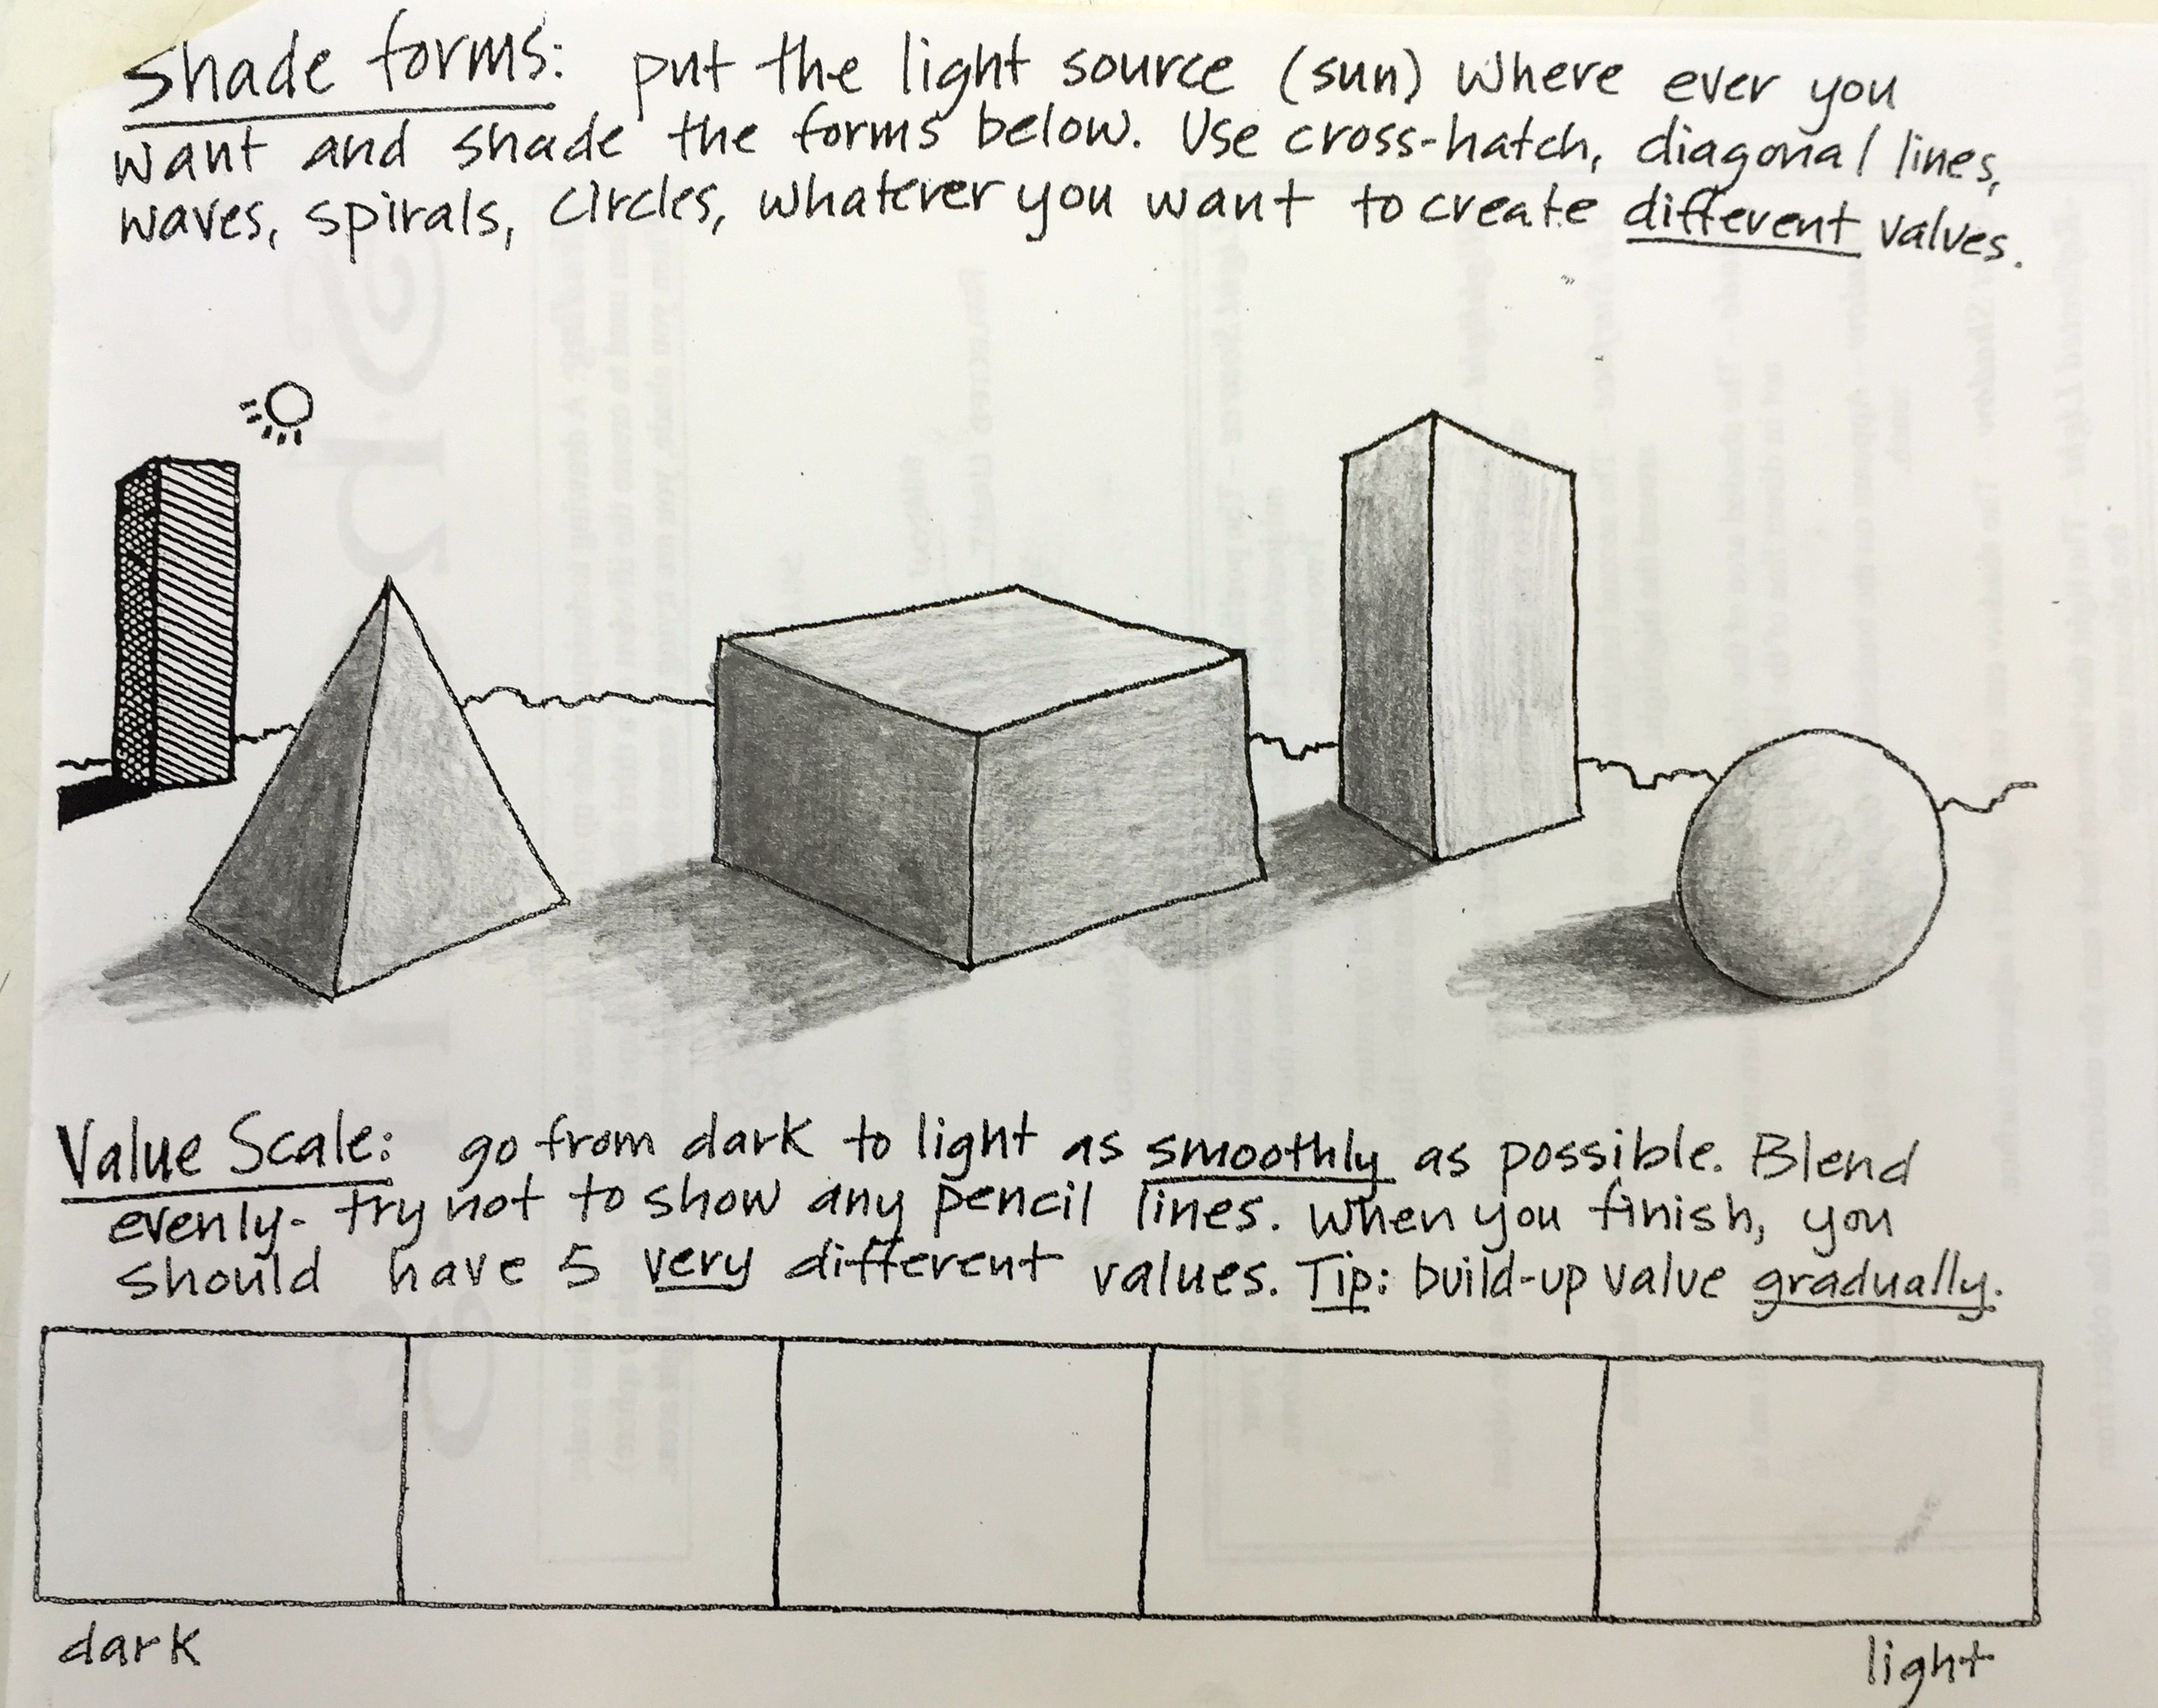 Shade forms: put the light source (sun) where ever you
want and shade the forms below. Use cross-hatch, diagonal lines,
waves, spirals, circles, whatever you want to create different valves.
Value Scale: go from dark to light as smoothly as possible. Blend
evenly- try not to show any pencil lines. When you finish, you
should have 5 very different values. Tip: build-up value gradually.
dark
light